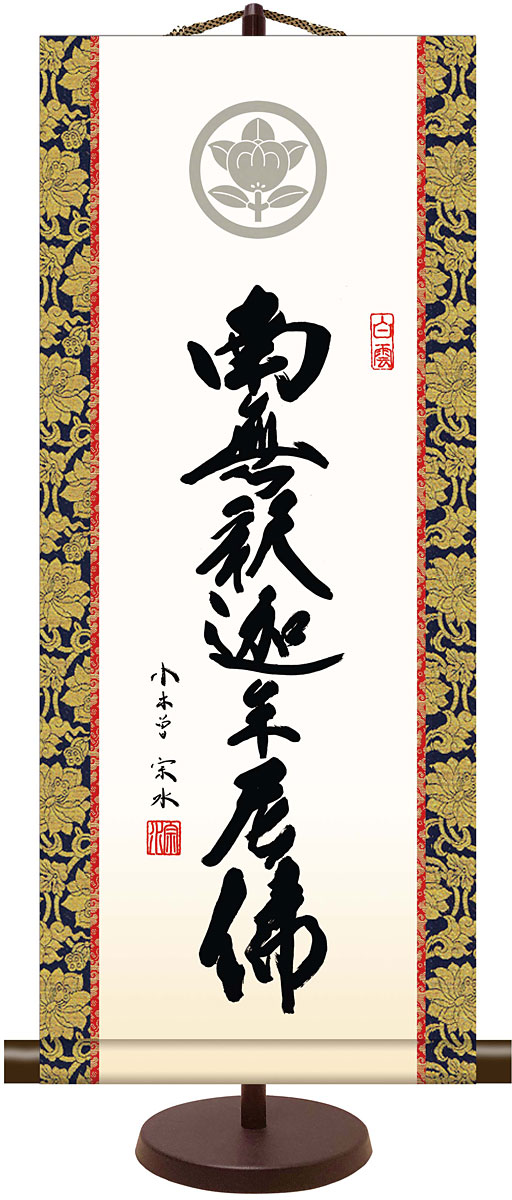 白雲
南無釈迦牟尼佛
小木曽 宗水
宗水